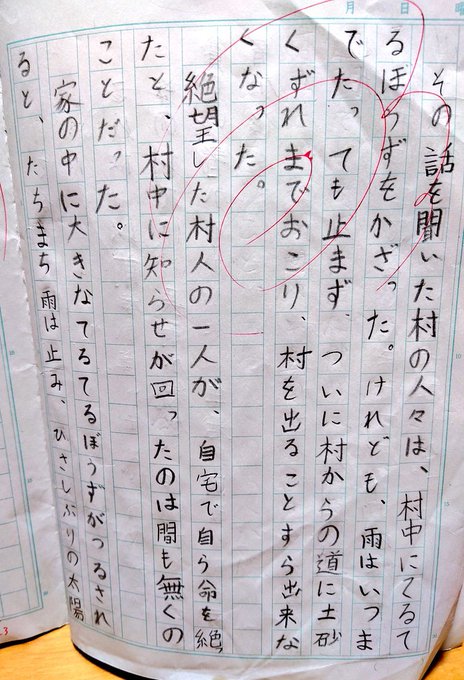 その話を聞いた村の人々は、村中にてるて
るぼうずをかざった。けれども、雨はいつま
でたっても止まず、ついに村からの道に土砂
くずれまでおこり、村を出ることすら出来な
くなった。
絶望した村人の一人が、自宅で自ら命を絶っ
たと、村中に知らせが回ったのは間も無くの
ことだった。
家の中に大きなてるてるぼうずがつるされ
ると、たちまち雨は止み、ひさしぶりの太陽
月 日